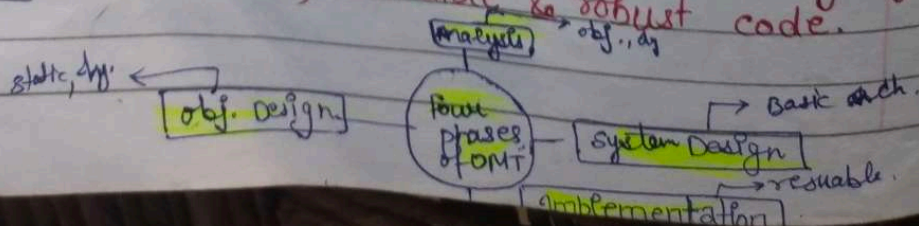 & robust code.
Analysis
obj., dy
static, dy.
obj. Design
four
phases
of OMT
System Design
Basic arch.
resuable.
implementation